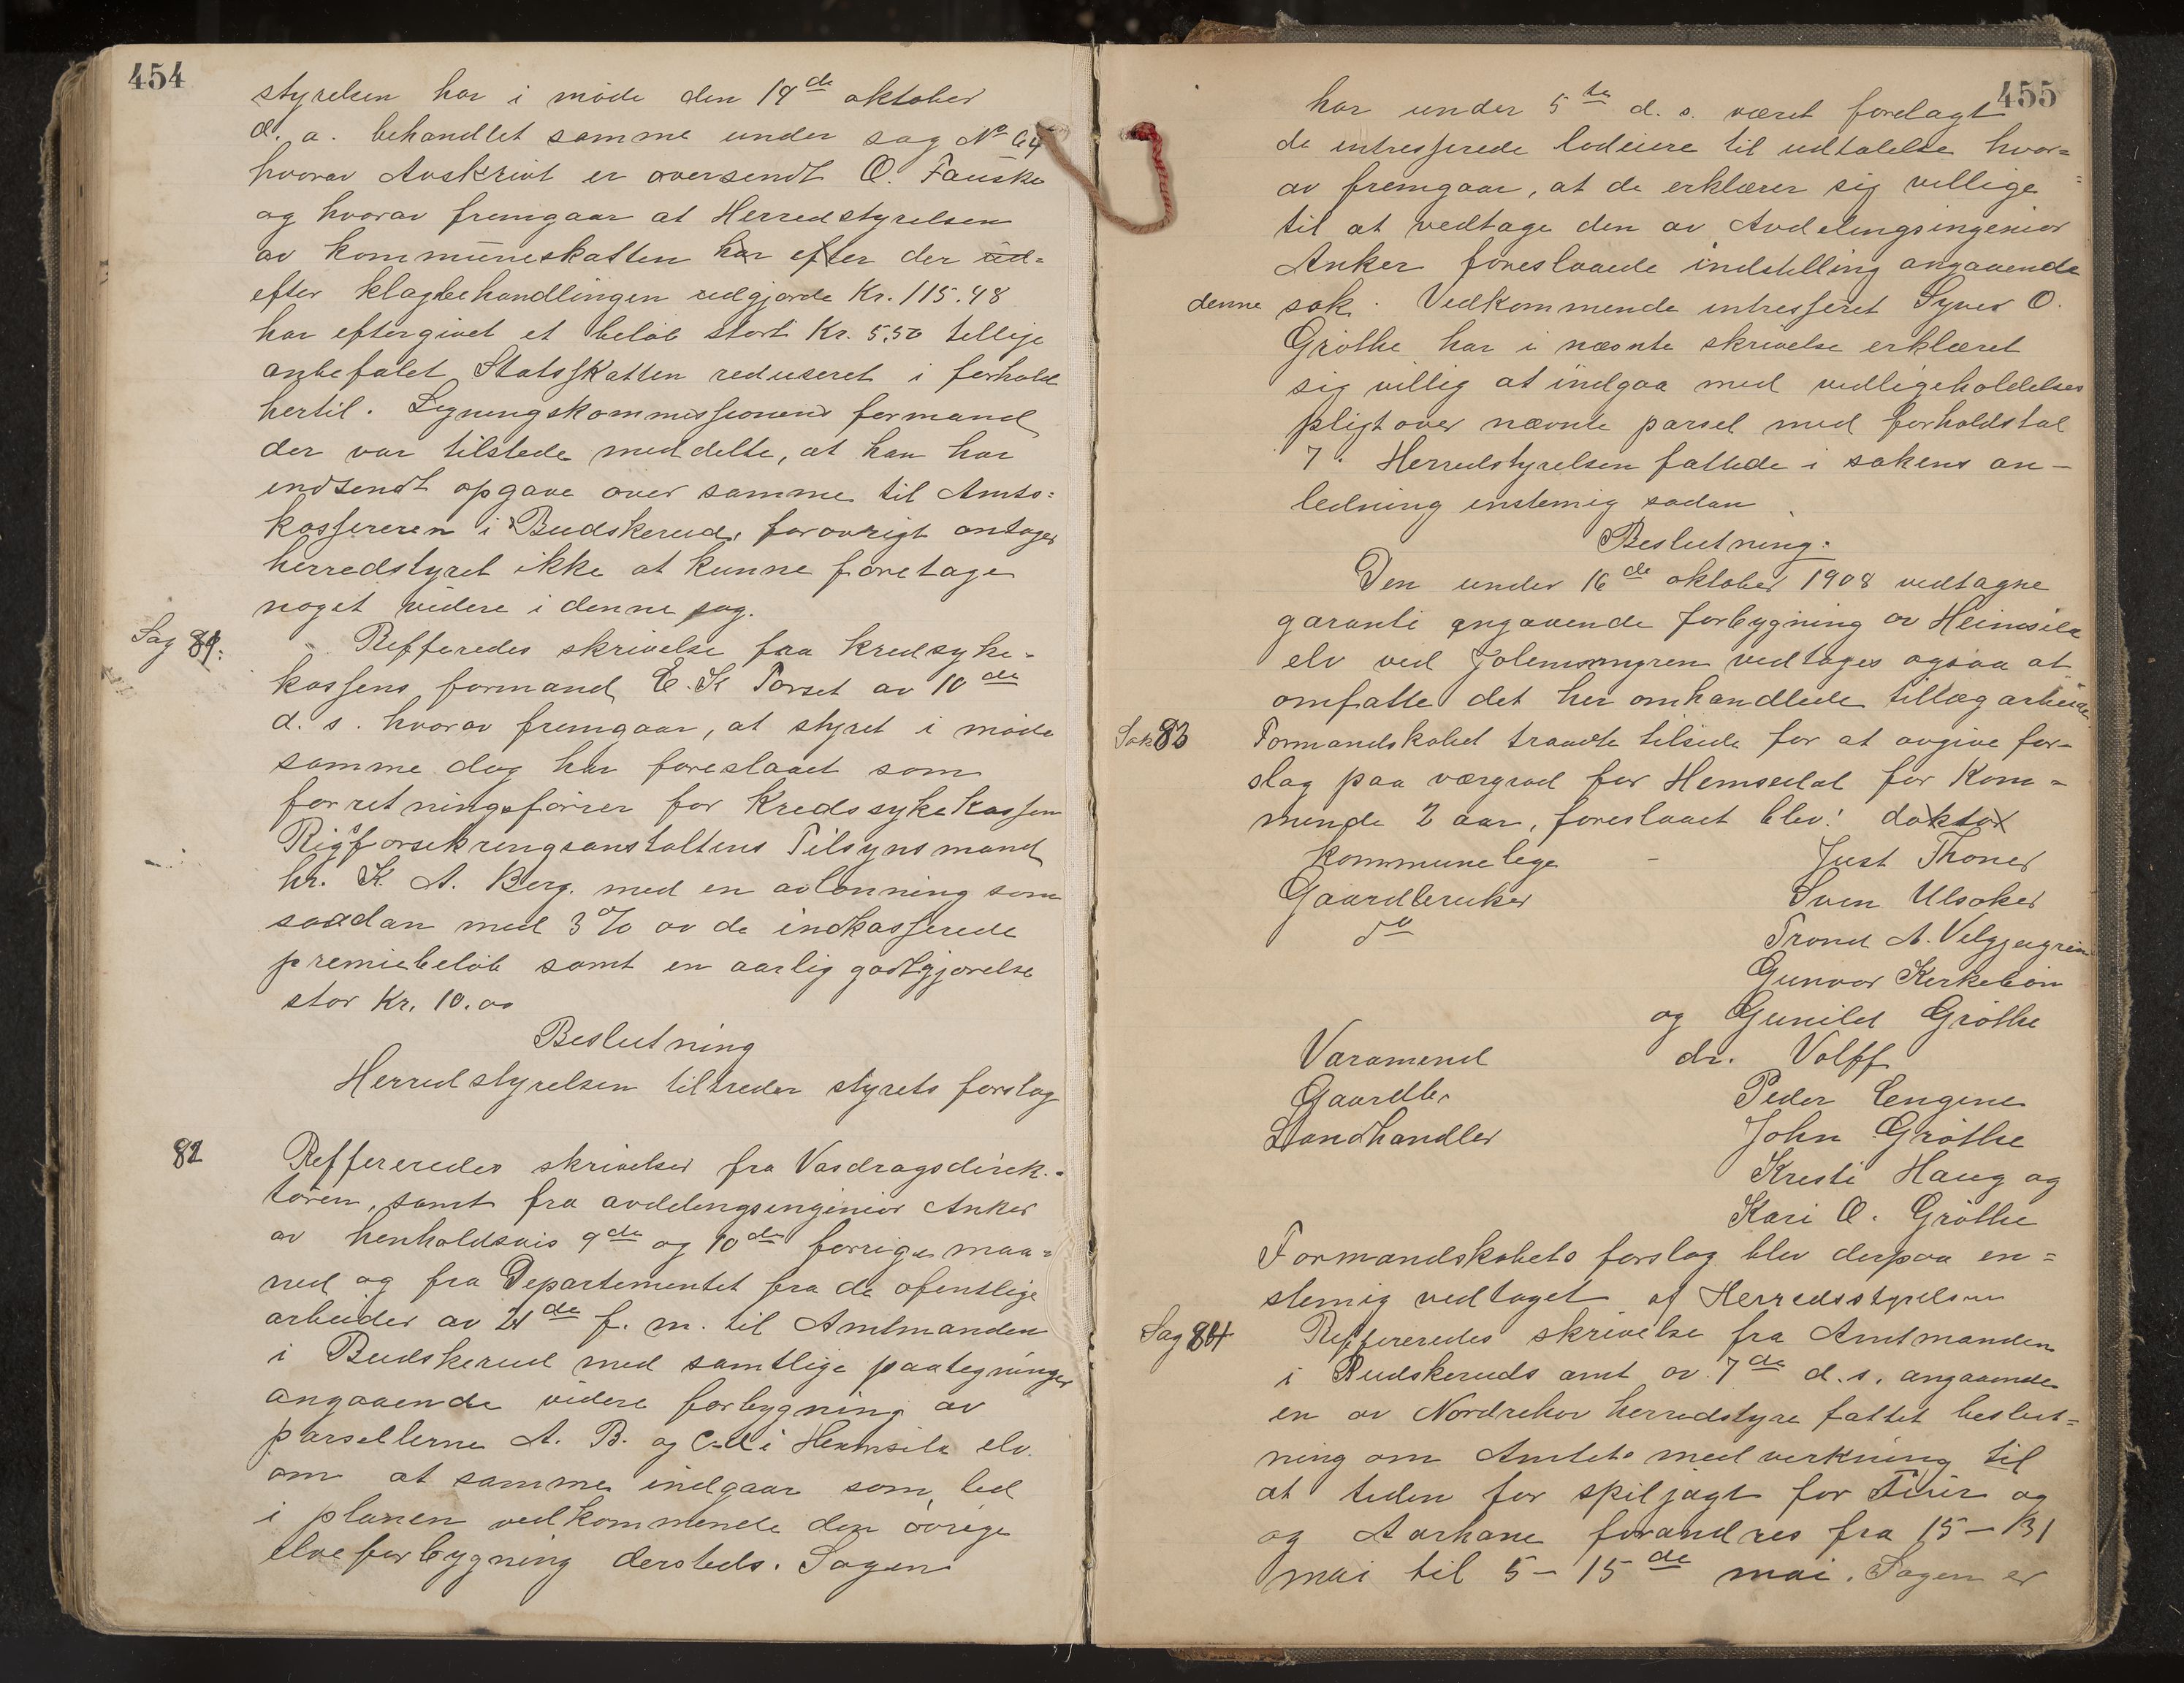 454
styrelsen har i møde den 14de oktober
d. a. behandlet samme under sag No 64
hvorav Avskrivt er oversendt O. Fauske
og hvorav fremgaar at Herredstyrelsen
av kommuneskatten har efter der ud=
efter klagbehandlingen udgjorde Kr. 115.48
har eftergivet et beløb stort Kr. 5,50 tillige
anbefalet Statsskatten reduseret i forhold
hertil. Ligningskommissionens formand
der var tilstede meddelte, at han har
indsendt opgave over samme til Amts=
kassereren i Budskerud, forøvrigt antager
herredstyret ikke at kunne foretage
noget videre i denne sag.
Sag 81: Refferedes skrivelse fra kredsyke=
kassens formand E. K Torset av 10de
d. s. hvorav fremgaar, at styret i møde
samme dag har foreslaaet som
forretningsfører for Kredssykekassen
Rigsforsikringsanstaltens Tilsynsmand
hr. K. A. Berg. med en avlønning som
saadan med 3 % av de indkasserede
premiebeløb samt en aarlig godtgjørelse
stor Kr. 10.00
Beslutning
Herredstyrelsen tiltreder styrets forslag
82 Reffereredes skrivelser fra Vasdragsdirek=
tøren, samt fra avdelingsingeniør Anker
av henholdsvis 9de og 10de forrige maa=
ned og fra Departementet fra de ofentlige
arbeider av 21de f. m. til Amtmanden
i Budskerud med samtlige paategninger
angaaende videre forbygning av
parsellerne A. B. og C-d i Heimsila elv.
om at samme indgaar som led
i planen vedkommende den øvrige
elveforbygning dersteds. Sagen
455
har under 5te d. s. været forelagt
de intresserede lodeiere til udtalelse hvor=
av fremgaar, at de erklærer sig villige
til at vedtage den av Avdelingsingeniør
Anker foreslaaede indstilling angaaende
denne sak. Vedkommende intresseret Syver O.
Grøthe har i nævnte skrivelse erklæret
sig villig at indgaa med vedligeholdelses
pligt over nævnte parsel med forholdstal
7. Herredstyrelsen fattede i sakens an-
ledning enstemig sadan
Beslutning:
Den under 16de oktober 1908 vedtagne
garanti angaaende forbygning av Heimsila
elv ved Jolemsmyren vedtages ogsaa at
omfatte det her omhandlede tillægarbeide
Sak 83 Formandskabet traadte tilside for at avgive for-
slag paa værgrad for Hemsedal for Kom=
mende 2 aar, foreslaaet blev: doktor
Kommunelege - Just Thoner
Gaardbruker Sven Ulsaker
do Trond A. Velgjagrim
Gunvor Kirkebøn
og Gunild Grøthe
Varamend dr. Volff
Gaardbr Peder Eengene
Landhandler John Grøthe
Kresti Haug og
Kari O. Grøthe
Formandskabets forslag blev derpaa en=
stemig vedtaget af Herredsstyrelsen
Sag 84 Reffereredes skrivelse fra Amtmanden
i Budskeruds amt av 7de d. s. angaaende
en av Nordrehov herredstyre fattet beslut=
ning om Amtets medverkning til
at tiden for spiljagt for Tiur og
og Aarhane forandres fra 15 - 31
mai til 5 - 15de mai. Sagen er